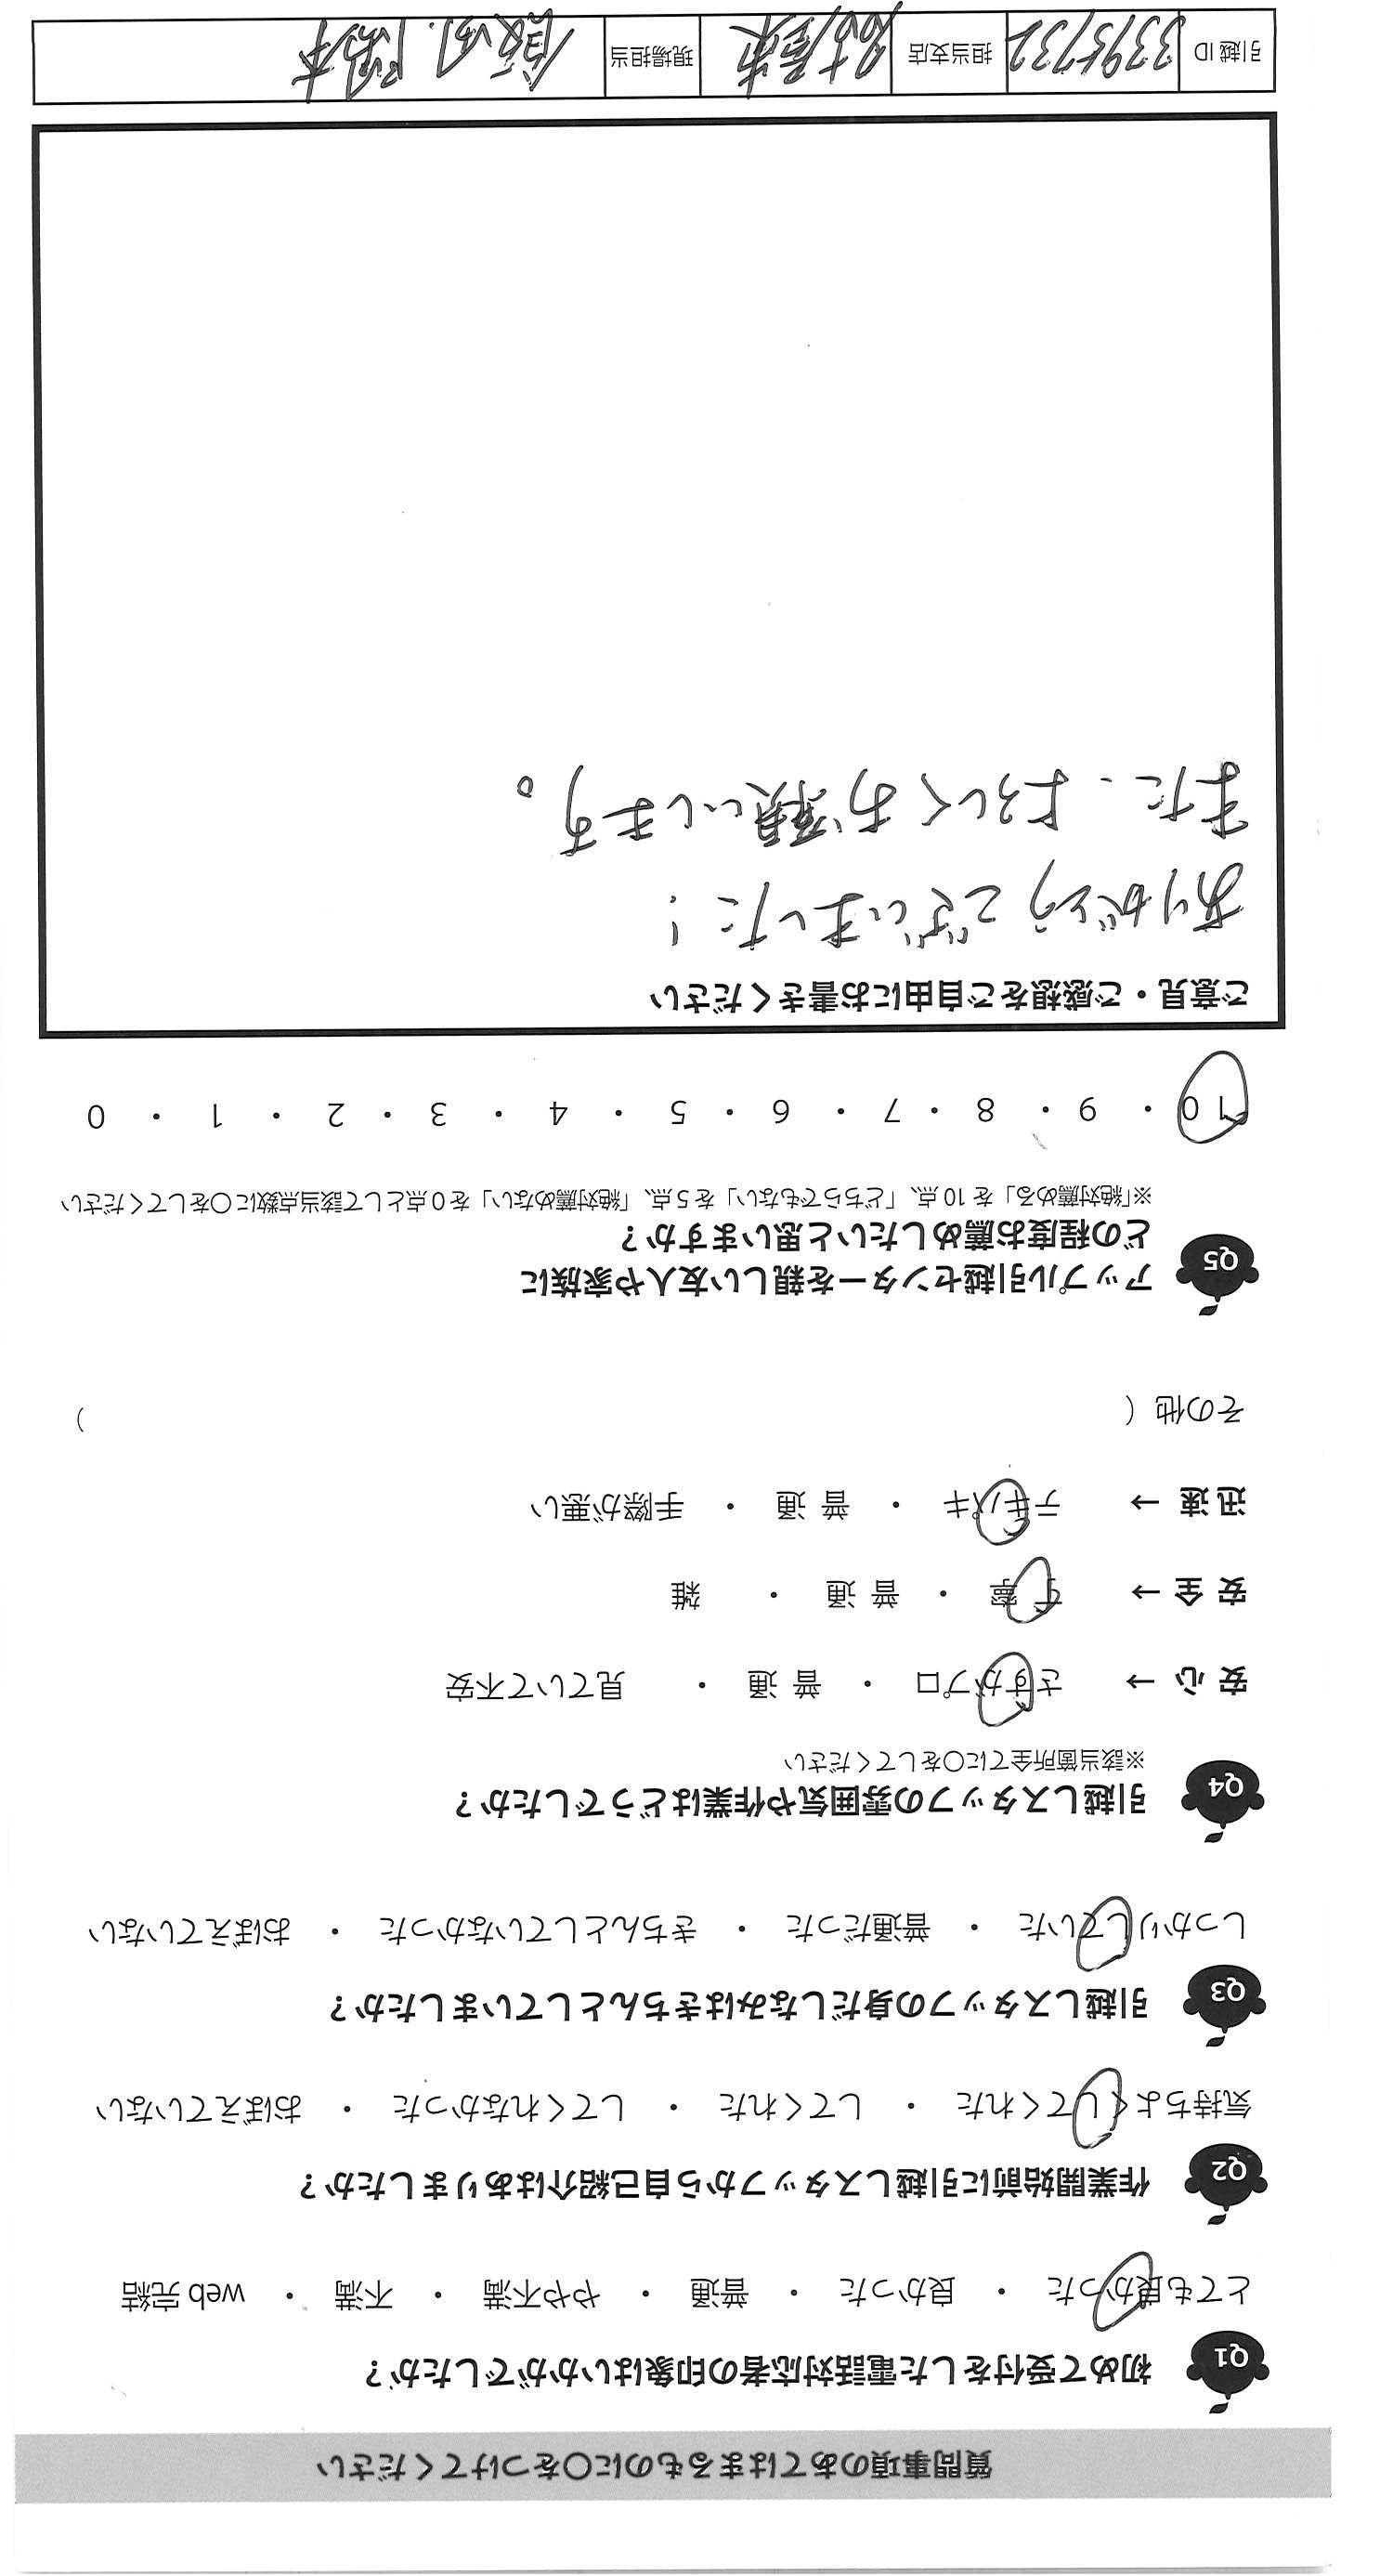 質問事項のあてはまるものに○をつけてください
Q1 初めて受付をした電話対応者の印象はいかがでしたか？
とても良かった ・ 良かった ・ 普通 ・ やや不満 ・ 不満 ・ web 完結
Q2 作業開始前に引越しスタッフから自己紹介はありましたか？
気持ちよくしてくれた ・ してくれた ・ してくれなかった ・ おぼえていない
Q3 引越しスタッフの身だしなみはきちんとしていましたか？
しっかりしていた ・ 普通だった ・ きちんとしていなかった ・ おぼえていない
Q4 引越しスタッフの雰囲気や作業はどうでしたか？
※該当箇所全てに○をしてください
安 心 → さすがプロ ・ 普 通 ・ 見ていて不安
安 全 → 丁 寧 ・ 普 通 ・ 雑
迅 速 → テキパキ ・ 普 通 ・ 手際が悪い
その他（ ）
Q5 アップル引越センターを親しい友人や家族に
どの程度お薦めしたいと思いますか？
※「絶対薦める」を 10 点、「どちらでもない」を 5 点、「絶対薦めない」を 0 点として該当点数に○をしてください
10 ・ 9 ・ 8 ・ 7 ・ 6 ・ 5 ・ 4 ・ 3 ・ 2 ・ 1 ・ 0
ご意見・ご感想をご自由にお書きください
ありがとうございました！
また、よろしくお願いします。
引越 ID 3395732 担当支店 東 現場担当